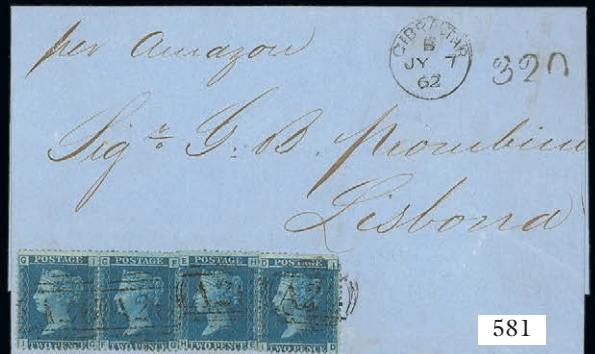 per Amazon
GIBRALTAR
B
JY 7
62
320
Sigr. G. B. Piombino
Lisbona
POSTAGE POSTAGE POSTAGE POSTAGE
A26 A26 A26 A26
TWO PENCE TWO PENCE TWO PENCE TWO PENCE
581